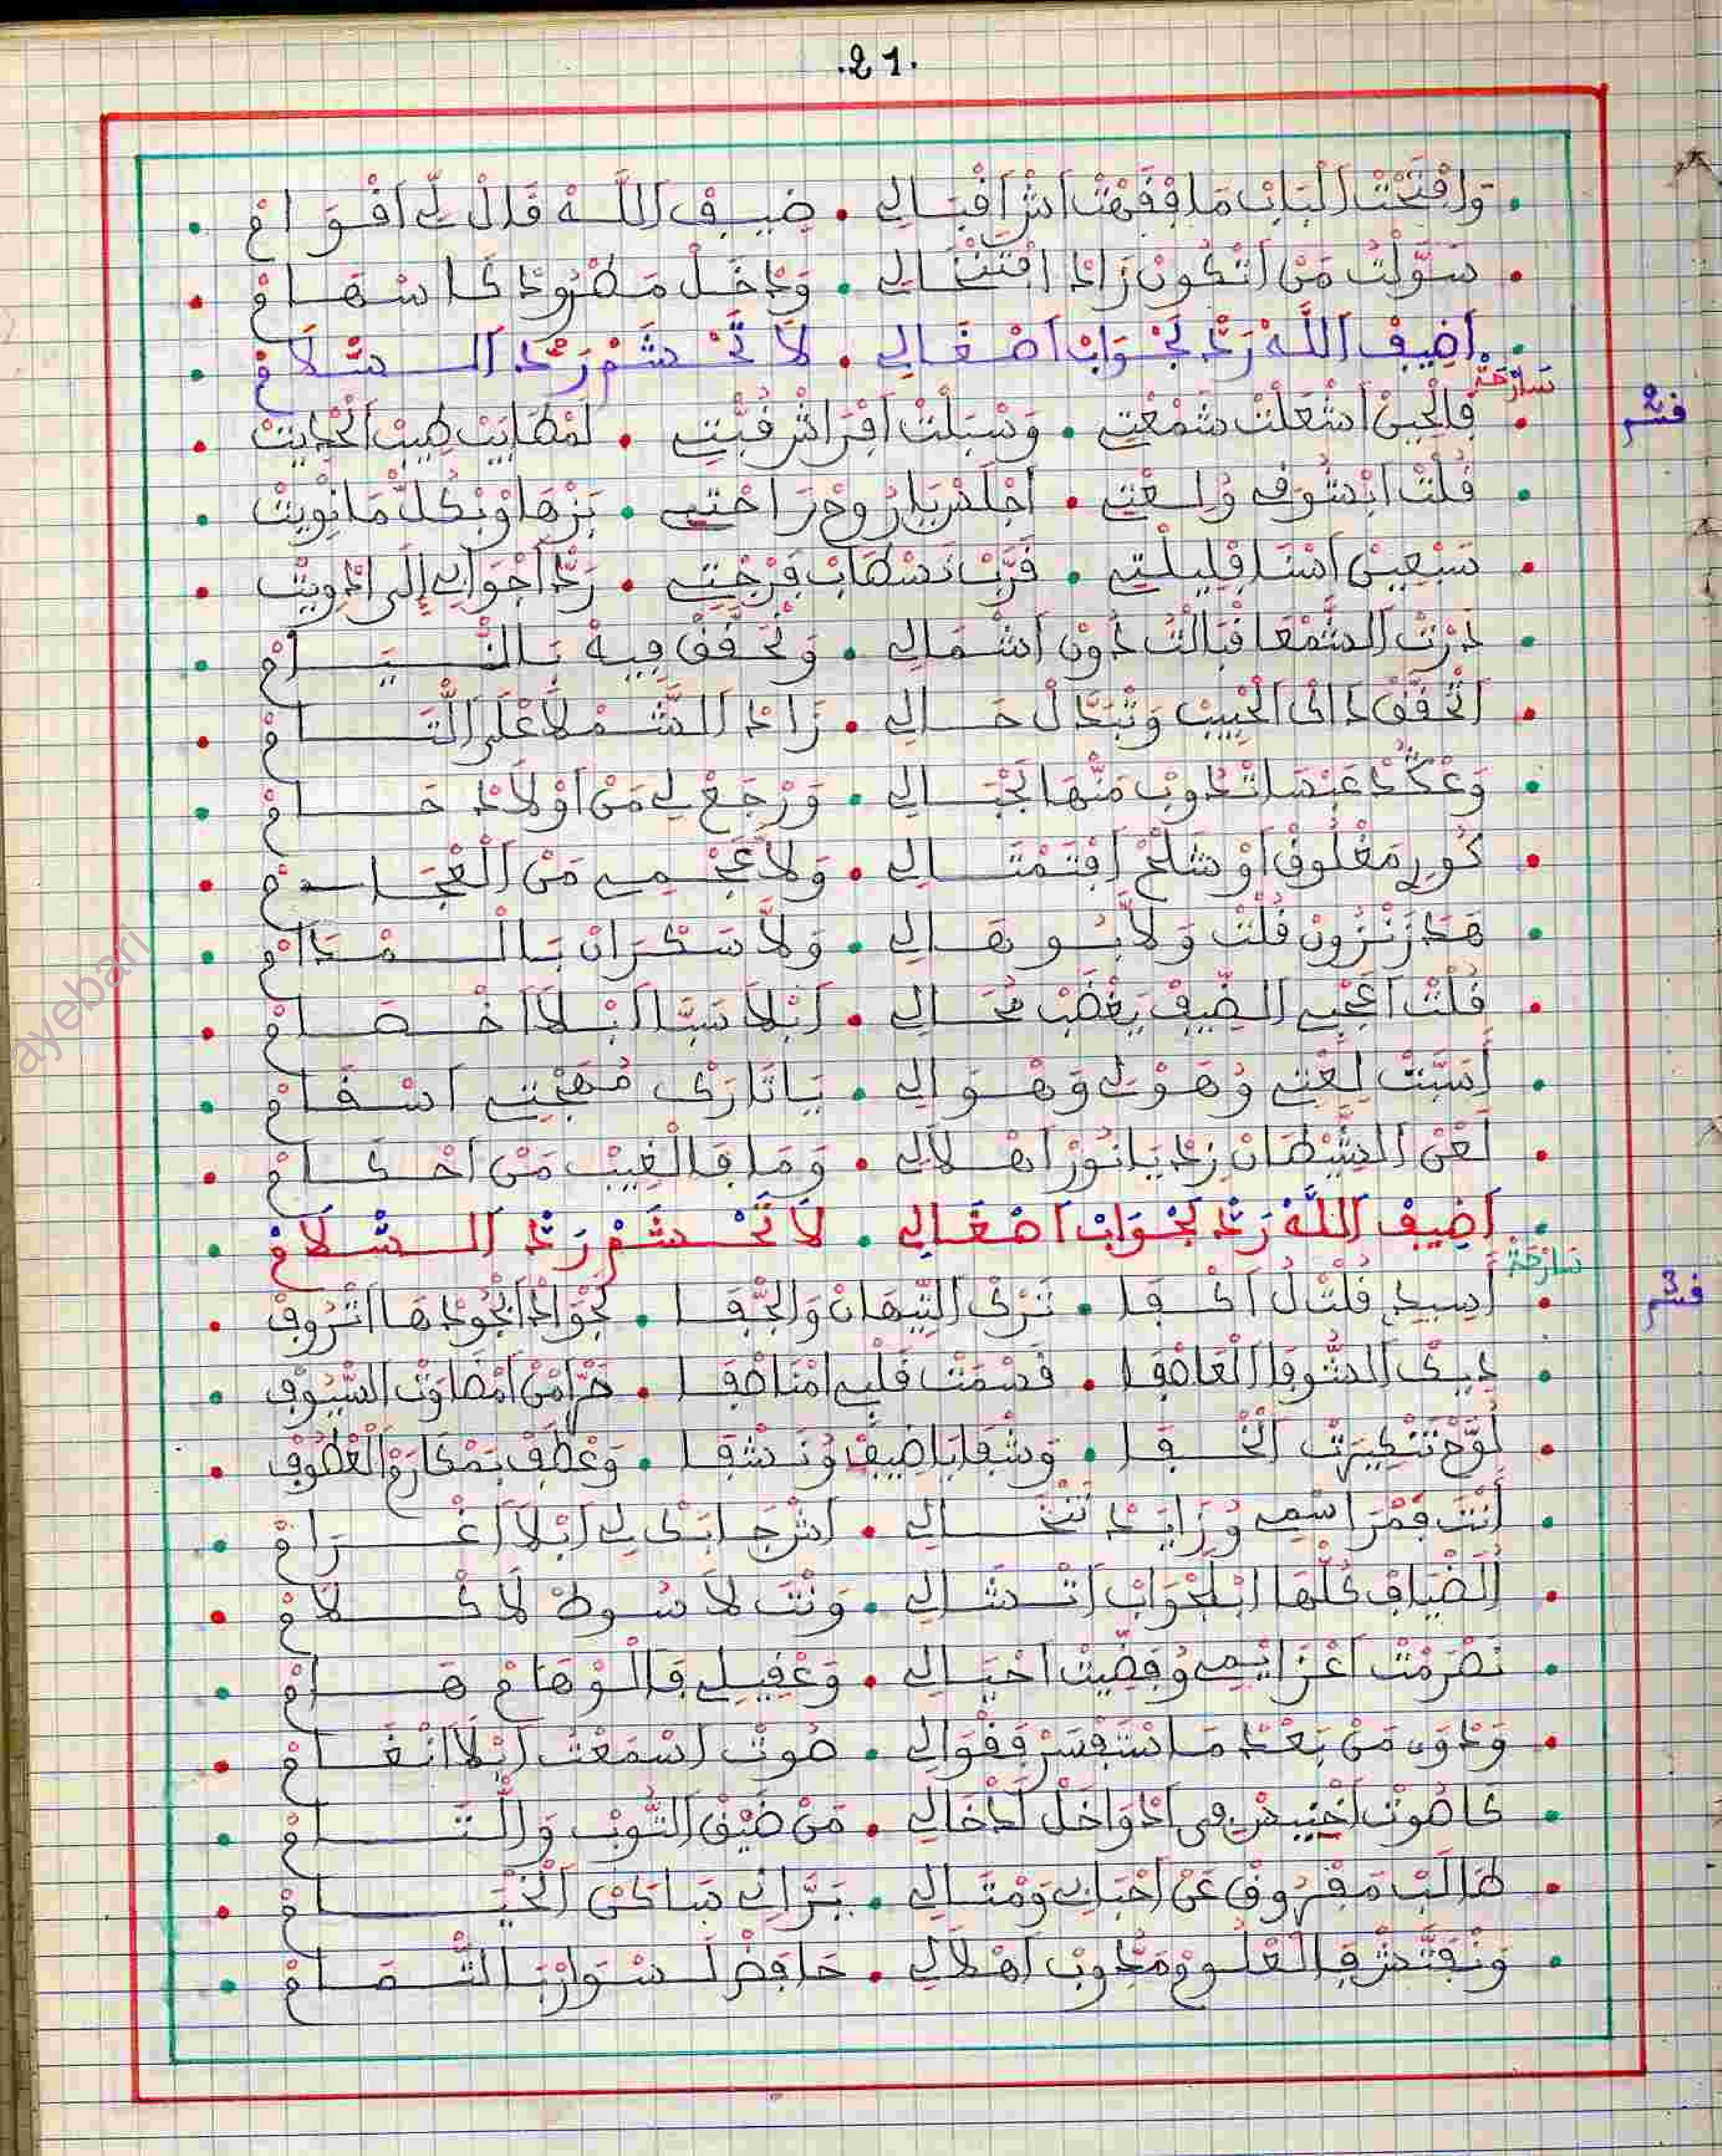 .21.
وَافْتَحْتْ اَلْبَابْ مَا فْقَهْتْ اَشْ اَقْبَالِي . ضِيفْ اَللَّهْ قَالْ لِي اَقْوَامْ
سَوَّلْتْ مَنْ اَتْكُونْ زَادْ افْتَنْخَالِي . وَدْخَلْ مَطْرُودْ كَاسْهَامْ
اَضِيفْ اَللَّهْ رَدّْ لَجْوَابْ اَصْغَالِي . لَا تَحْشَمْ رَدّْ اَلسّْلَامْ
سَارْحَةْ
قسم 2
فَالْحِينْ اَشْعَلْتْ شَمْعْتِي . وَسْبَلْتْ اَفْرَاشْ قُبّْتِي . لَمْطَايَبْ طِيبْ اَلْحْدِيتْ
قُلْتْ اَبْشُوفْ وُلِعْتِي . اَجْلَسْ يَا رُوحْ رَاحْتِي . بَزْهَا وْبْكُلّْ مَا نْوِيتْ
سَبْعِينْ اَسْنَا فْلِيلْتِي . قَرَّبْ نَسْطَابْ فَرْجْتِي . رَدّْ اَجْوَابِي إِلَى اَدْوِيتْ
دَرْتْ اَلشَّمْعَا قْبَالْتُ دُونْ اَشْمَالِي . وَنْحَقَّقْ فِيهْ بَالنّْيَامْ
اَتْحَقَّقْ دَاكْ اَلْحْبِيبْ وَتْبَدَّلْ حَالِي . زَادْ اَلشَّمْلَا عْلَى اَللّْتَامْ
وَعْكَدْ غَبْصَا تْدُوبْ مَنّْهَا لَجْبَالِي . وَرْجَعْ لِي مَنْ اَوْلَادْ حَامْ
كُورِي مَغْلُوفْ اَوْ شَلْحْ اَفْتَمْتَالِي . وَلَا عَجْمِي مَنْ اَلْعْجَامْ
هَدَرْ نْزُونْ قُلْتْ وَلَا بُوهَالِي . وَلَا سَكْرَانْ بَالْمْدَامْ
قُلْتْ اَعْجَبِي اَلضِّيفْ يَغْضَبْ مُحَالِي . اَبْلَا سَبَّا اَبْلَا اَخْصَامْ
أَسَبّْتْ لِعْتِي وُهَوْلِي وَهْوَالِي . يَا تَارَكْ مُهَجْتِي اَسْقَامْ
لَعْنْ اَلشِّيْطَانْ زِدْ يَا نُورْ اَهْلَالِي . وَمَا فَالْغِيبْ مَنْ اَحْكَامْ
اَضِيفْ اَللَّهْ رَدّْ لَجْوَابْ اَصْغَالِي . لَا تَحْشَمْ رَدّْ اَلسّْلَامْ
سَارْحَةْ
قسم 3
أَسِيدِي قُلْتْ لُ اَكْفَا . تَرْكْ اَلتِّيهَانْ وَالْجّْفَا . لَجْوَادْ اَبْجُودْهَا اَتْرُوفْ
دِينْ اَلشُّوقَا اَلْعَاصْفَا . قَسْمَتْ قَلْبِي اَمْنَاصْفَا . حَرّْ اَمْنْ اَمْضَاوَتْ السّْيُوفْ
لَوَّحْ تَنْكِيرْتْ اَلْخْفَا . وَشْفَا يَا ضِيفْ وُنَشْفَا . وَعْطَفْ بَمْكَارَمْ اَلْعْطُوفْ
أَنْتَ قَمْرَا سْمِي وُزَايَدْ تَنْخَالِي . اَشْ جَابَكْ لِي اَبْلَا اَغْرَامْ
اَلْضْيَافْ كُلّْهَا اَبْلَجْوَابْ اَتْسَالِي . وَنْتَ لَا سُوطْ لَا كْلَامْ
نَصْرَمْتْ اَعْزَايْمِي وُقَضِّيتْ اَحْيَالِي . وَعْقِيلِي فَالْوْهَامْ هَامْ
وَدْوَى مَنْ بَعْدْ مَا اَسْتَفْسَرْ فَقْوَالِي . صُوتْ اَسْمَعْتُ اَبْلَا اَنْغَامْ
كَاصُوتْ اَخْنِيسْ فِي اَدْوَاخَلْ اَدْخَالِي . مَنْ ضَيْقْ التُّوبْ وَاللّْتَامْ
طَالَبْ مَفْرُوقْ عَنْ اَحْبَابِي وَمْتَالِي . بَرَّانِي سَاكَنْ اَلْخْيَامْ
وَنْفَتَّشْ فَالْعْلُومْ وَمَدُوبْ اَهْلَالِي . حَافَضْ لَسْوَارْ بَالتّْمَامْ